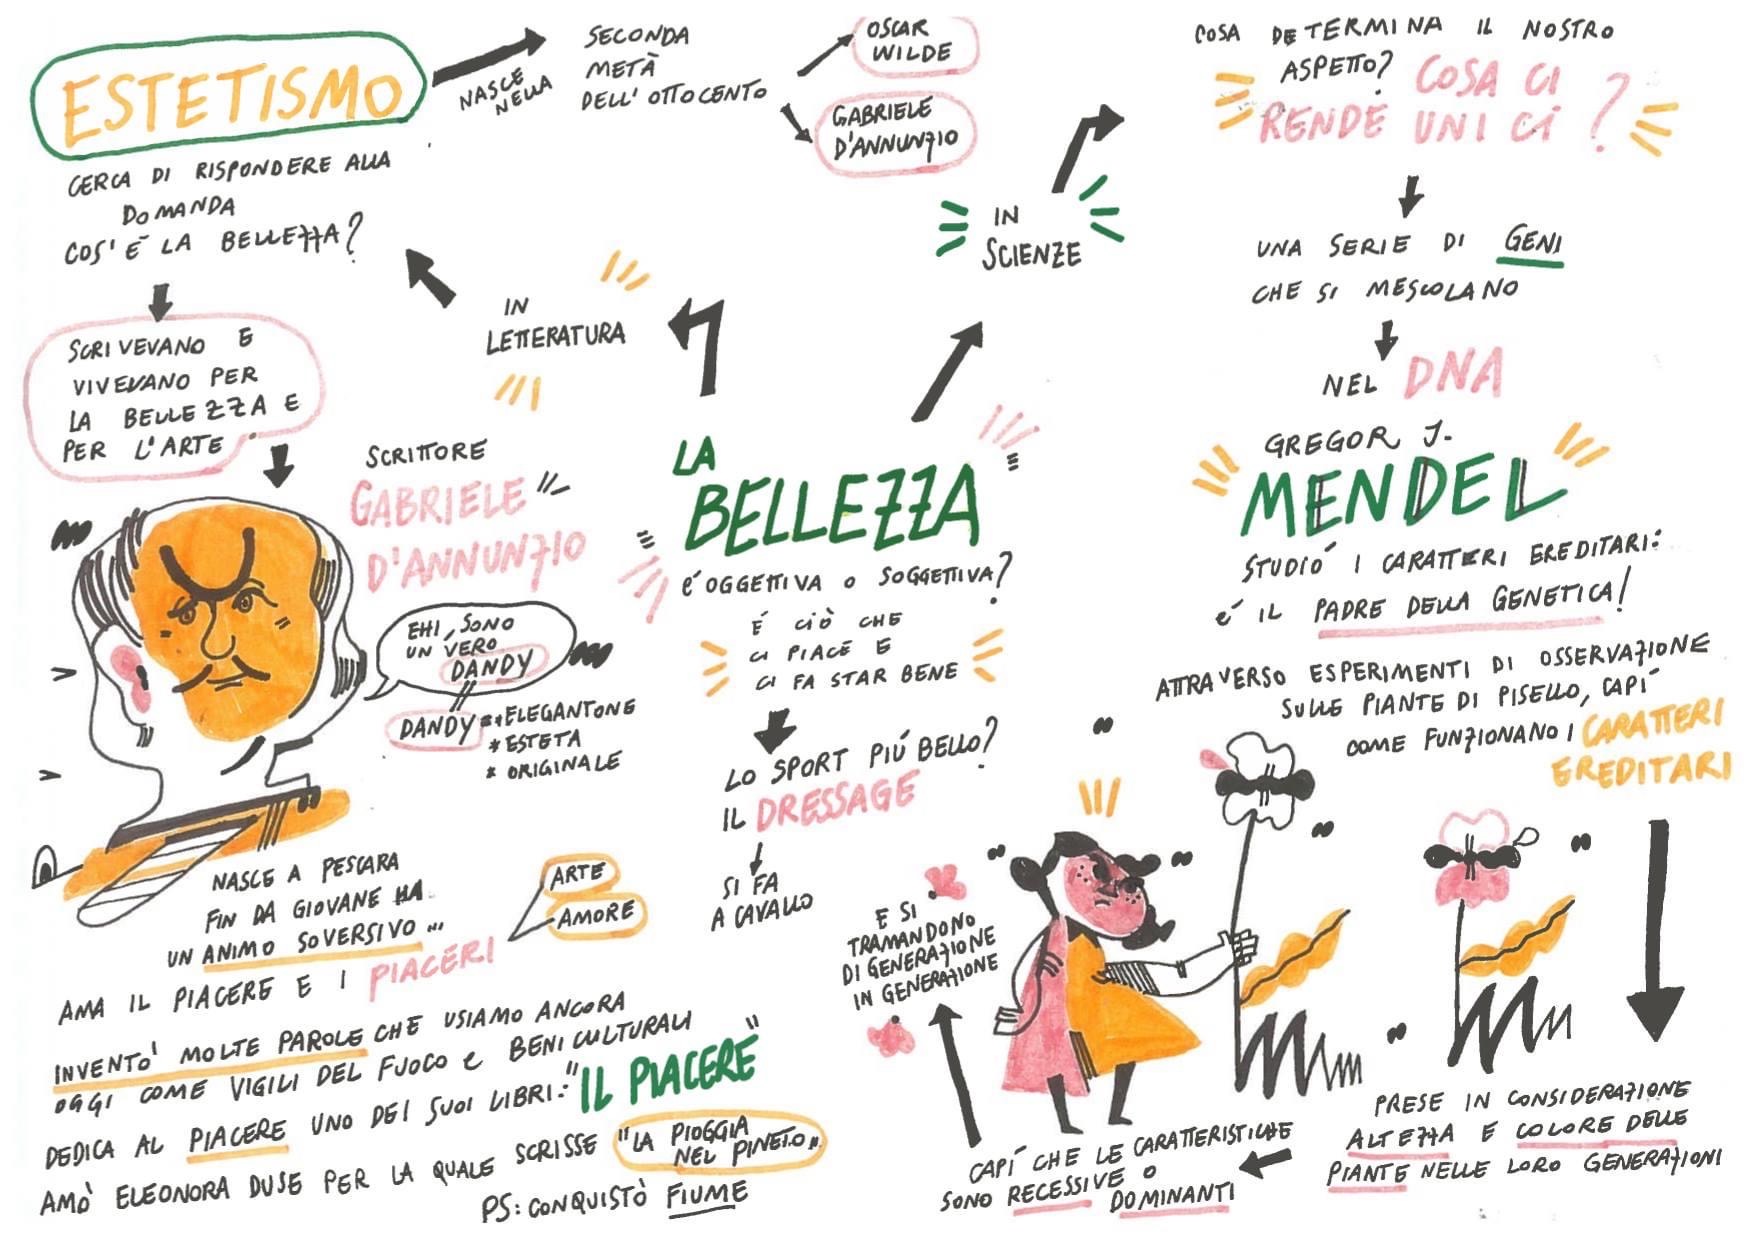 ESTETISMO
NASCE
NELLA
SECONDA
METÀ
DELL'OTTOCENTO
OSCAR
WILDE
GABRIELE
D'ANNUNZIO
CERCA DI RISPONDERE ALLA
DOMANDA
COS'È LA BELLEZZA?
SCRIVEVANO E
VIVEVANO PER
LA BELLEZZA E
PER L'ARTE
IN
LETTERATURA
SCRITTORE
GABRIELE
D'ANNUNZIO
EHI, SONO
UN VERO
DANDY
DANDY * ELEGANTONE
* ESTETA
* ORIGINALE
NASCE A PESCARA
FIN DA GIOVANE HA
UN ANIMO SOVERSIVO...
AMA IL PIACERE E I PIACERI
ARTE
AMORE
INVENTO' MOLTE PAROLE CHE USIAMO ANCORA
OGGI COME VIGILI DEL FUOCO e BENI CULTURALI
DEDICA AL PIACERE UNO DEI SUOI LIBRI: "IL PIACERE"
AMÒ ELEONORA DUSE PER LA QUALE SCRISSE "LA PIOGGIA
NEL PINETO"
PS: CONQUISTÒ FIUME
LA
BELLEZZA
É OGGETTIVA O SOGGETTIVA?
É CIÒ CHE
CI PIACE E
CI FA STAR BENE
LO SPORT PIÚ BELLO?
IL DRESSAGE
SI FA
A CAVALLO
IN
SCIENZE
COSA DETERMINA IL NOSTRO
ASPETTO? COSA CI
RENDE UNICI?
UNA SERIE DI GENI
CHE SI MESCOLANO
NEL DNA
GREGOR J.
MENDEL
STUDIÓ I CARATTERI EREDITARI:
É IL PADRE DELLA GENETICA!
ATTRAVERSO ESPERIMENTI DI OSSERVAZIONE
SULLE PIANTE DI PISELLO, CAPÍ
COME FUNZIONANO I CARATTERI
EREDITARI
PRESE IN CONSIDERAZIONE
ALTEZZA E COLORE DELLE
PIANTE NELLE LORO GENERAZIONI
CAPÍ CHE LE CARATTERISTICHE
SONO RECESSIVE O
DOMINANTI
E SI
TRAMANDONO
DI GENERAZIONE
IN GENERAZIONE